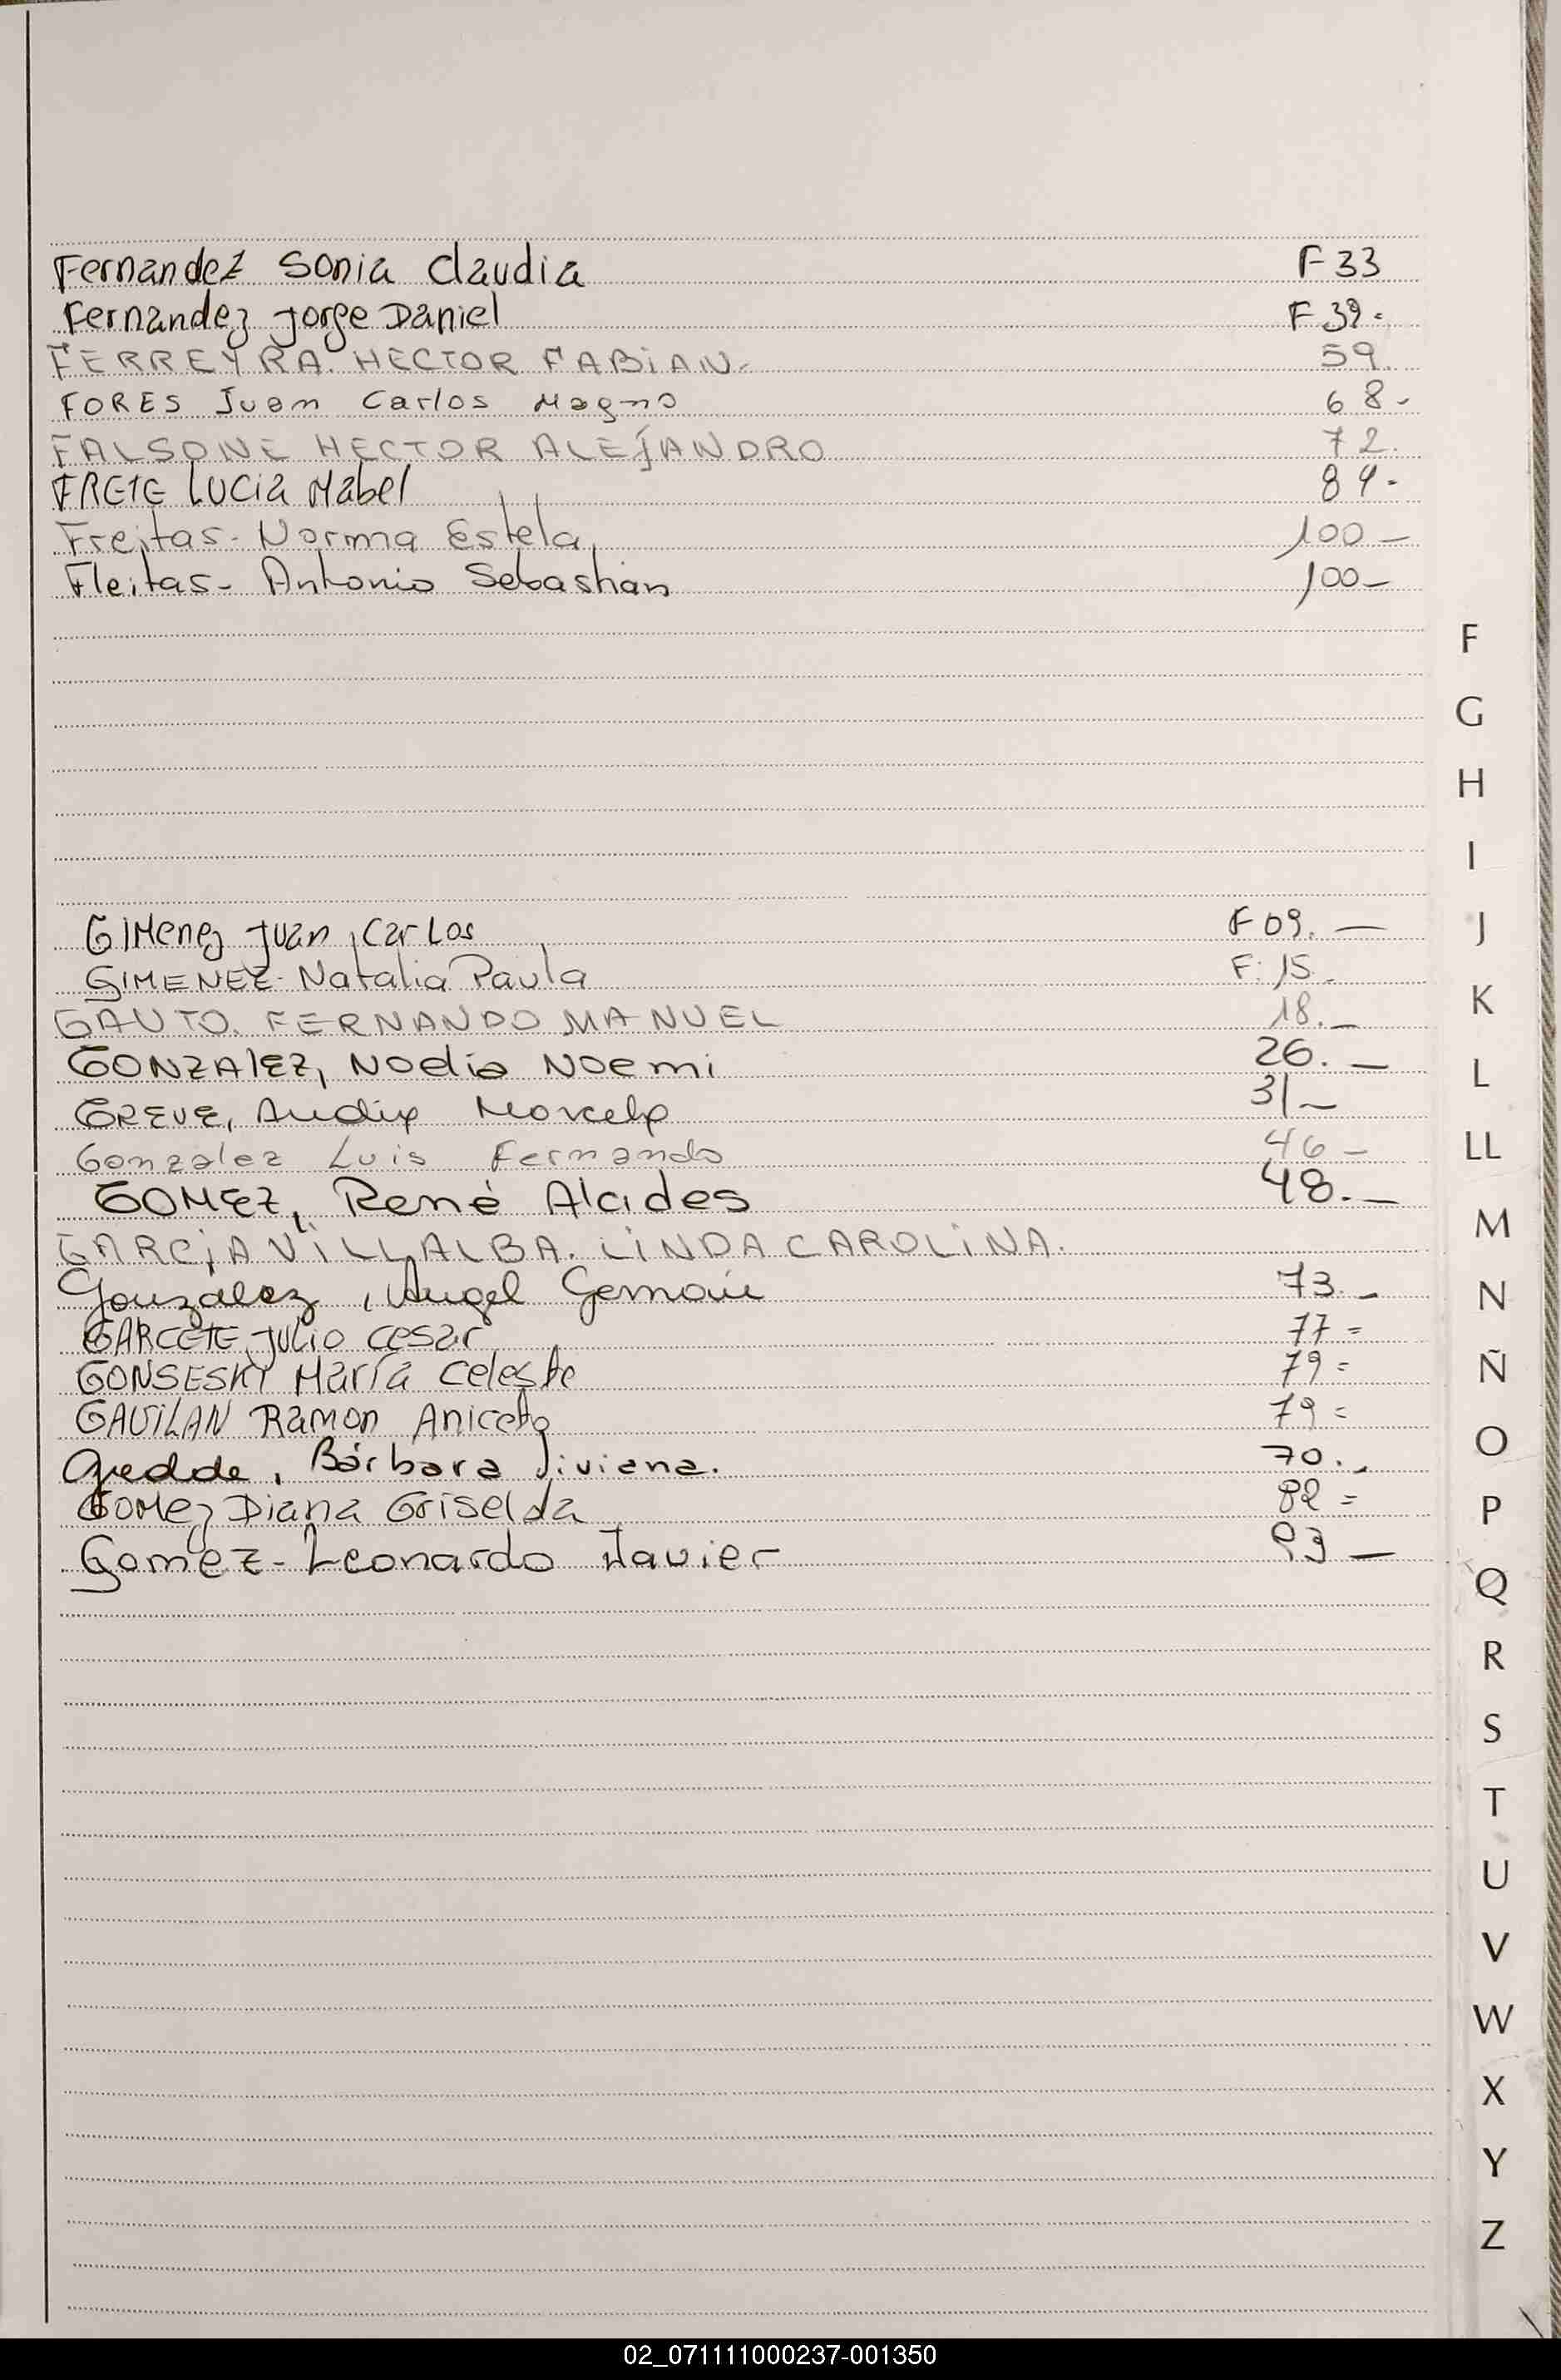 Fernandez Sonia Claudia F 33
Fernandez Jorge Daniel F 39-
FERREYRA. HECTOR FABIAN- 59.
FORES Juan Carlos Magno 68-
FALSONE HECTOR ALEJANDRO 72.
FRETE LUCIA Mabel 84-
Freitas- Norma Estela 100-
Fleitas- Antonio Sebastian 100-
F
G
H
I
GIMenez Juan Carlos F 09. — J
GIMENEZ- Natalia Paula F: 15.-
GAUTO. FERNANDO MANUEL 18.- K
GONZALEZ, Noelia Noemi 26. —
GREVE, Marcelo 31 — L
Gonzalez Luis Fernando 46 - LL
GOMEZ, René Alcides 48. —
GARCIA VILLALBA. LINDA CAROLINA. M
Gonzalez, Angel Germain 73.- N
GARCETE JULIO Cesar 77=
GONSESKY María Celeste 79= Ñ
GAVILAN Ramon Aniceto 79=
Gredde, Bárbara Viviana. 70.- O
GOMez Diana Griselda 82= P
Gomez- Leonardo Javier 93 —
Q
R
S
T
U
V
W
X
Y
Z
02_071111000237-001350